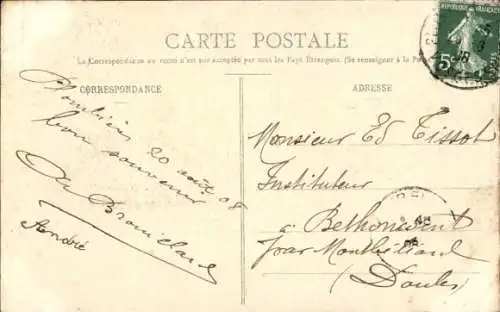 CARTE POSTALE
La Correspondance au recto n'est pas acceptée par tous les Pays Étrangers. (Se renseigner à la Poste)
CORRESPONDANCE
ADRESSE
REPUBLIQUE FRANÇAISE
5
Plombières 20 août 08
bon souvenir
André
Monsieur Ed Tissot
Instituteur
à Bethoncourt
par Montbéliard
(Doubs)